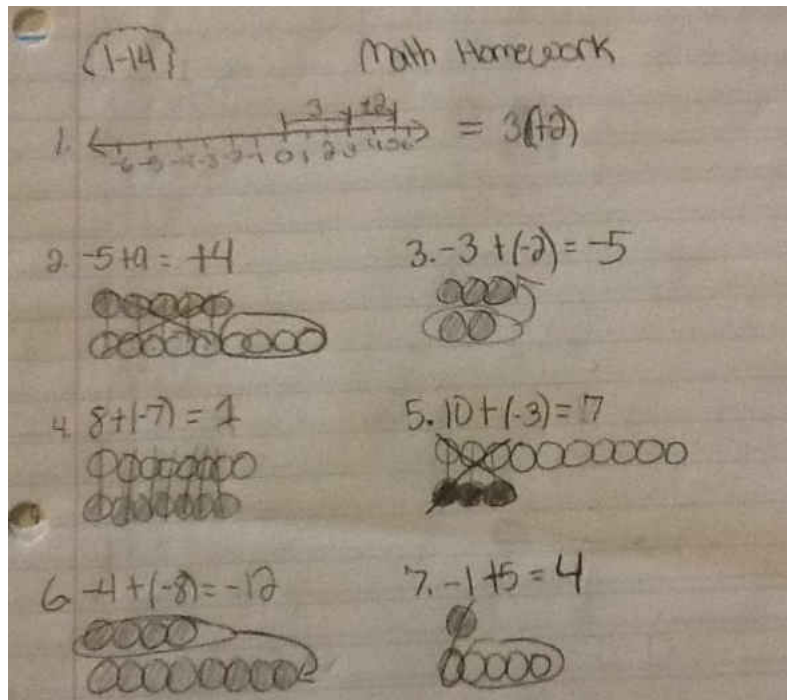 (1-14) Math Homework
3 +2
1. -6 -5 -4 -3 -2 -1 0 1 2 3 4 5 6 = 3(+2)
2. -5+9 = +4 3. -3 +(-2) = -5
4. 8+(-7) = 1 5. 10+(-3) = 7
6. -4+(-8) = -12 7. -1+5 = 4